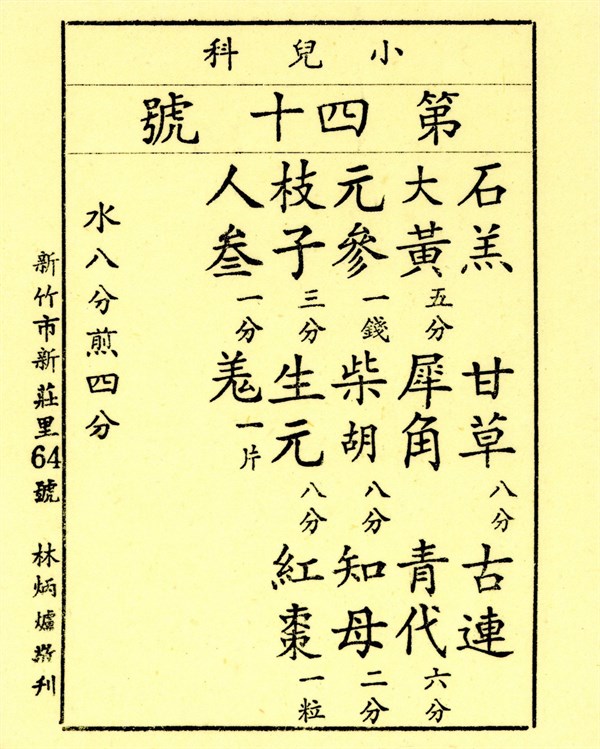 小兒科
第四十號
石羔 甘草八分 古連
大黃五分 犀角 青代六分
元參一錢 柴胡八分 知母二分
枝子三分 生元八分 紅棗一粒
人叁一分 羗一片
水八分煎四分
新竹市新莊里64號 林炳爐刊